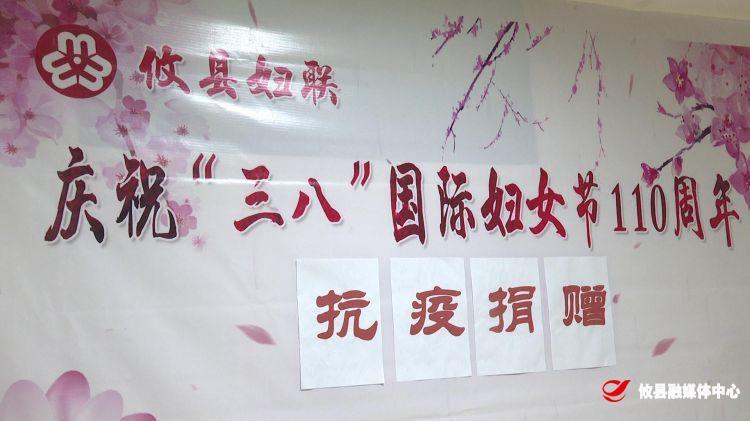 攸县妇联
庆祝“三八”国际妇女节110周年
抗疫捐赠
攸县融媒体中心